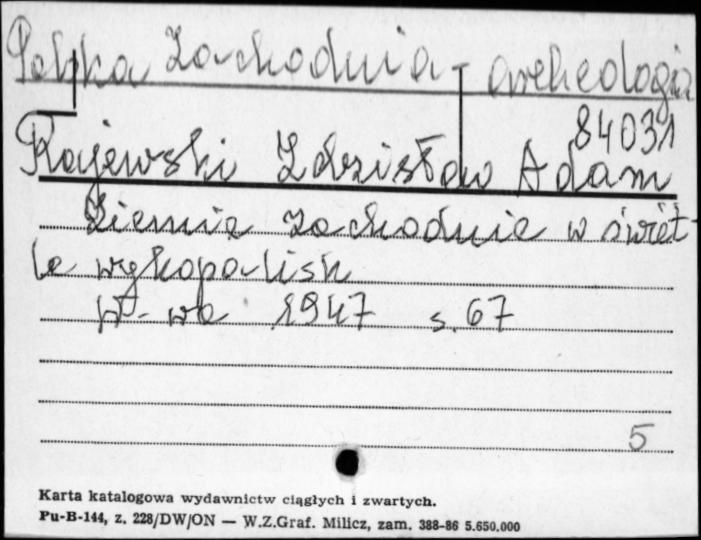 Polska Zachodnia - archeologia
84031
Rajewski Zdzisław Adam
Ziemie zachodnie w świet-
le wykopalisk
W-wa 1947 s. 67
5
Karta katalogowa wydawnictw ciągłych i zwartych.
Pu-B-144, z. 228/DW/ON — W.Z.Graf. Milicz, zam. 388-86 5.650.000